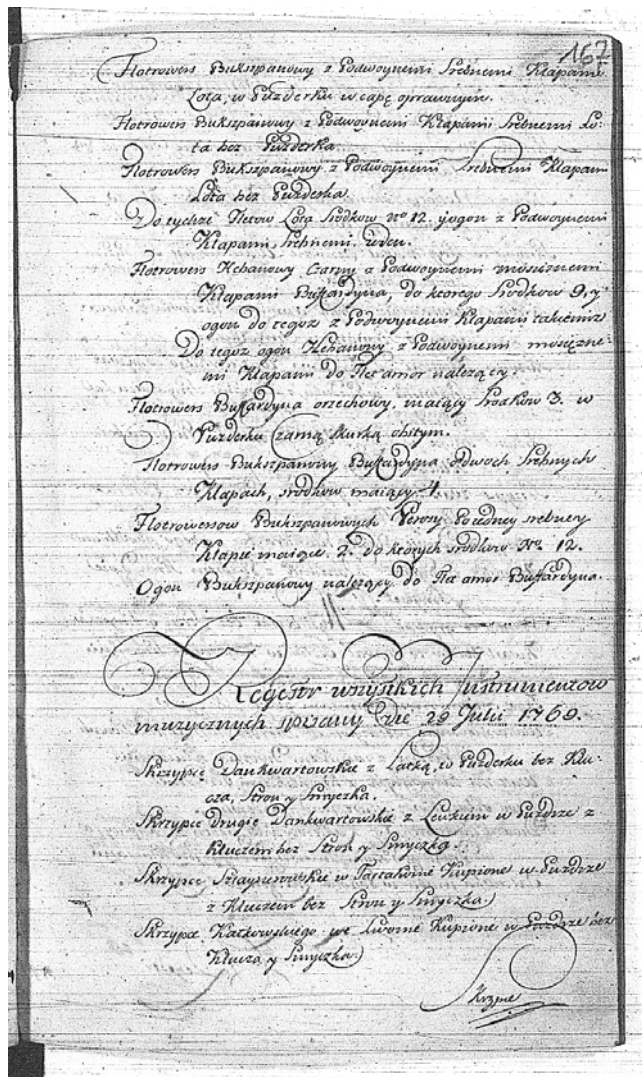 167
Flotrowers Bukszpanowy z Podwoynemi Srebnemi Kłapami
Lota, w Puzderku w capę oprawnym.
Flotrowers Bukszpanowy z Podwoynemi Kłapami Srebnemi Lo-
ta bez Puzderka
Flotrowers Bukszpanowy z Podwoynemi Srebnemi Kłapami
Lota bez Puzderka
Do tychze Fletow Lota Srodkow No 12. y ogon z Podwoynemi
Kłapami Srebnemi
Flotrowers Hebanowy Czarny z Podwoynemi mosięznemi
Kłapami Buffardyna, do ktorego Srodkow 9, y
ogon do tegoz z Podwoynemi Kłapami takiemiz
Do tegoz ogon Hebanowy z Podwoynemi mosięzne-
mi Kłapami do Flet amor nalezący.
Flotrowers Buffardyna orzechowy, maiący Srodkow 3. w
Puzderku czarną skurką obitym.
Flotrowers Bukszpanowy Buffardyna o dwoch Srebnych
Kłapach, srodkow maiący 4.
Flotrowersow Bukszpanowych Gerosy Po iedney srebney
Kłapie maiące 2. do ktorych srodkow No. 12.
Ogon Bukszpanowy nalezący do Flet amor Buffardyna.
Regestr wszystkich Instrumentow
muzycznych spisany Die 29 Julii 1769.
Skrzypce Dankwartowskie z Laską, w Puzderku bez Klu-
cza, Stron y Smyczka.
Skrzypce drugie Dankwartowskie z Lewkiem w Puzdrze z
Kluczem bez Stron y Smyczka.
Skrzypce w Kupione w Puzdrze
z Kluczem bez Stron y Smyczka
Skrzypce Katkowskiego we Lwowie Kupione w Puzdrze bez
Klucza y Smyczka
Skrzypce